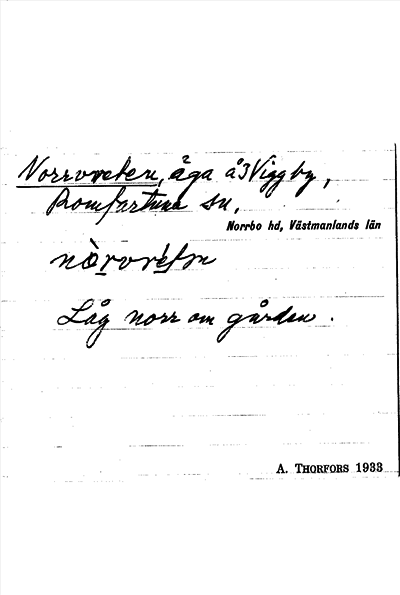 Norrvreten, åga å 3 Viggby,
Romfartuna sn,
Norrbo hd, Västmanlands län
Låg norr om gården.
A. THORFORS 1933